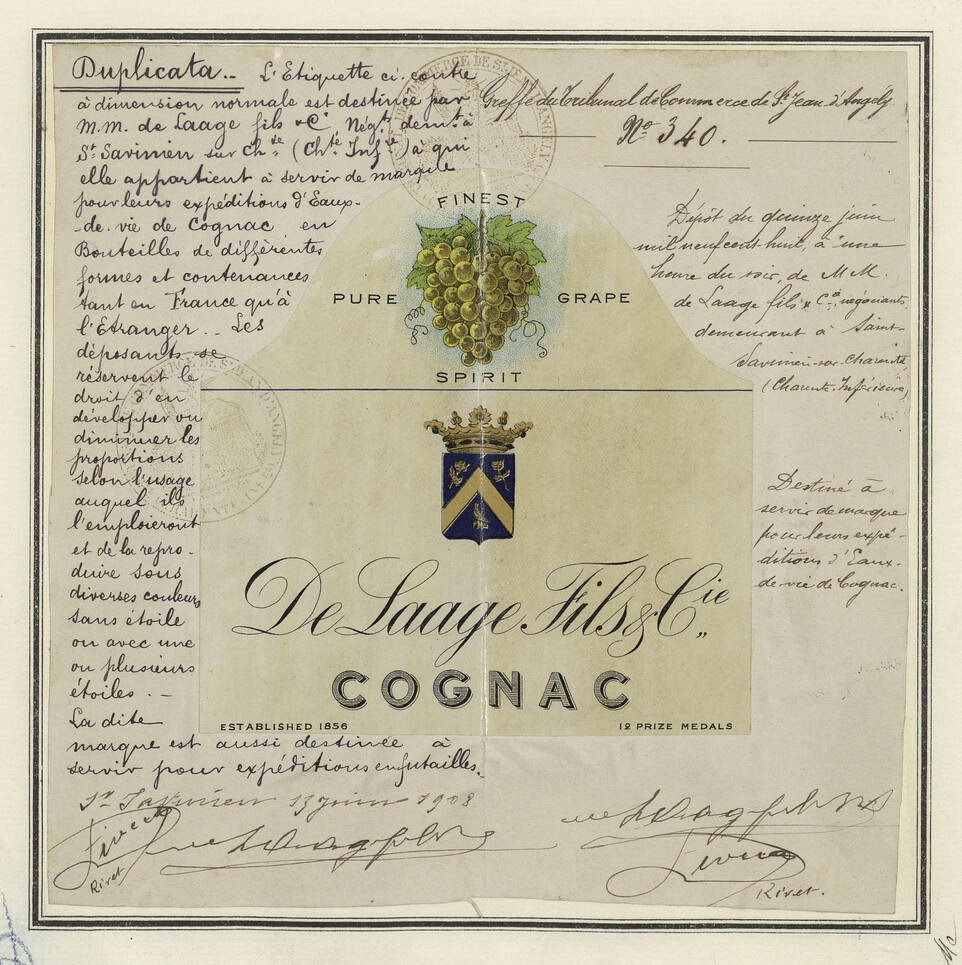 Duplicata.. L'Etiquette ci-contre
à dimension normale est destinée par
M.M. de Laage fils & Cie, Négts demt à
St Savinien sur Chte (Chte Infre) à qui
elle appartient à servir de marque
pour leurs expéditions d'Eaux-
-de-vie de Cognac en
Bouteilles de différentes
formes et contenances
tant en France qu'à
l'Etranger.. Les
déposants se
réservent le
droit d'en
développer ou
diminuer les
proportions
selon l'usage
auquel ils
l'emploieront
et de la repro-
duire sous
diverses couleurs
sans étoile
ou avec une
ou plusieurs
étoiles. -
La dite
marque est aussi destinée à
servir pour expéditions en futailles.
St Savinien 13 juin 1908
Rivet
Greffe du Tribunal de Commerce de St Jean d'Angely
No 340.
Dépôt du quinze juin
mil neuf cent huit, à une
heure du soir, de M M.
de Laage fils & Cie négociants
demeurant à Saint-
Savinien-sur-Charente
(Charente-Inférieure)
Destiné à
servir de marque
pour leurs expé-
ditions d'Eaux-
de-vie de Cognac.
Rivet.
FINEST
PURE GRAPE
SPIRIT
De Laage Fils & Cie
COGNAC
ESTABLISHED 1856
12 PRIZE MEDALS